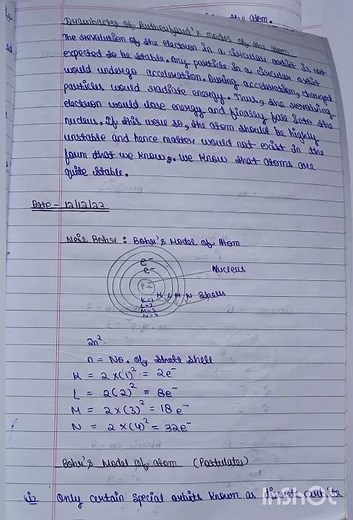 this atom.
Drawbacks of Rutherford's model of the atom
The revolution of the electron in a circular orbit is not
expected to be stable. Any particle in a circular orbit
would undergo acceleration. During acceleration, charged
particles would radiate energy. Thus, the revolving
electron would lose energy and finally fall into the
nucleus. If this were so, the atom should be highly
unstable and hence matter would not exist in the
form that we know. We know that atoms are
quite stable.
Date - 12/12/23
Neil Bohr : Bohr's Model of Atom
e-
e-
Nucleus
P+
K L M N Shells
K=1
L=2
M=3
N=4
2n²
n = No. of shell
K = 2×(1)² = 2e-
L = 2(2)² = 8e-
M = 2×(3)² = 18e-
N = 2×(4)² = 32e-
Bohr's Model of atom (Postulates)
Only certain special orbits known as discrete orbits
InShot